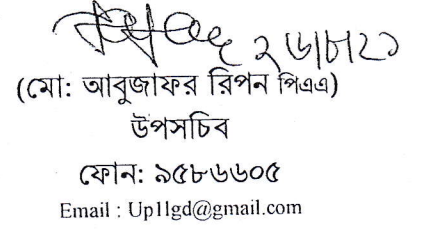 ২৬/৮/২১
(মো: আবুজাফর রিপন পিএএ)
উপসচিব
ফোন: ৯৫৮৬৬০৫
Email : Up1lgd@gmail.com